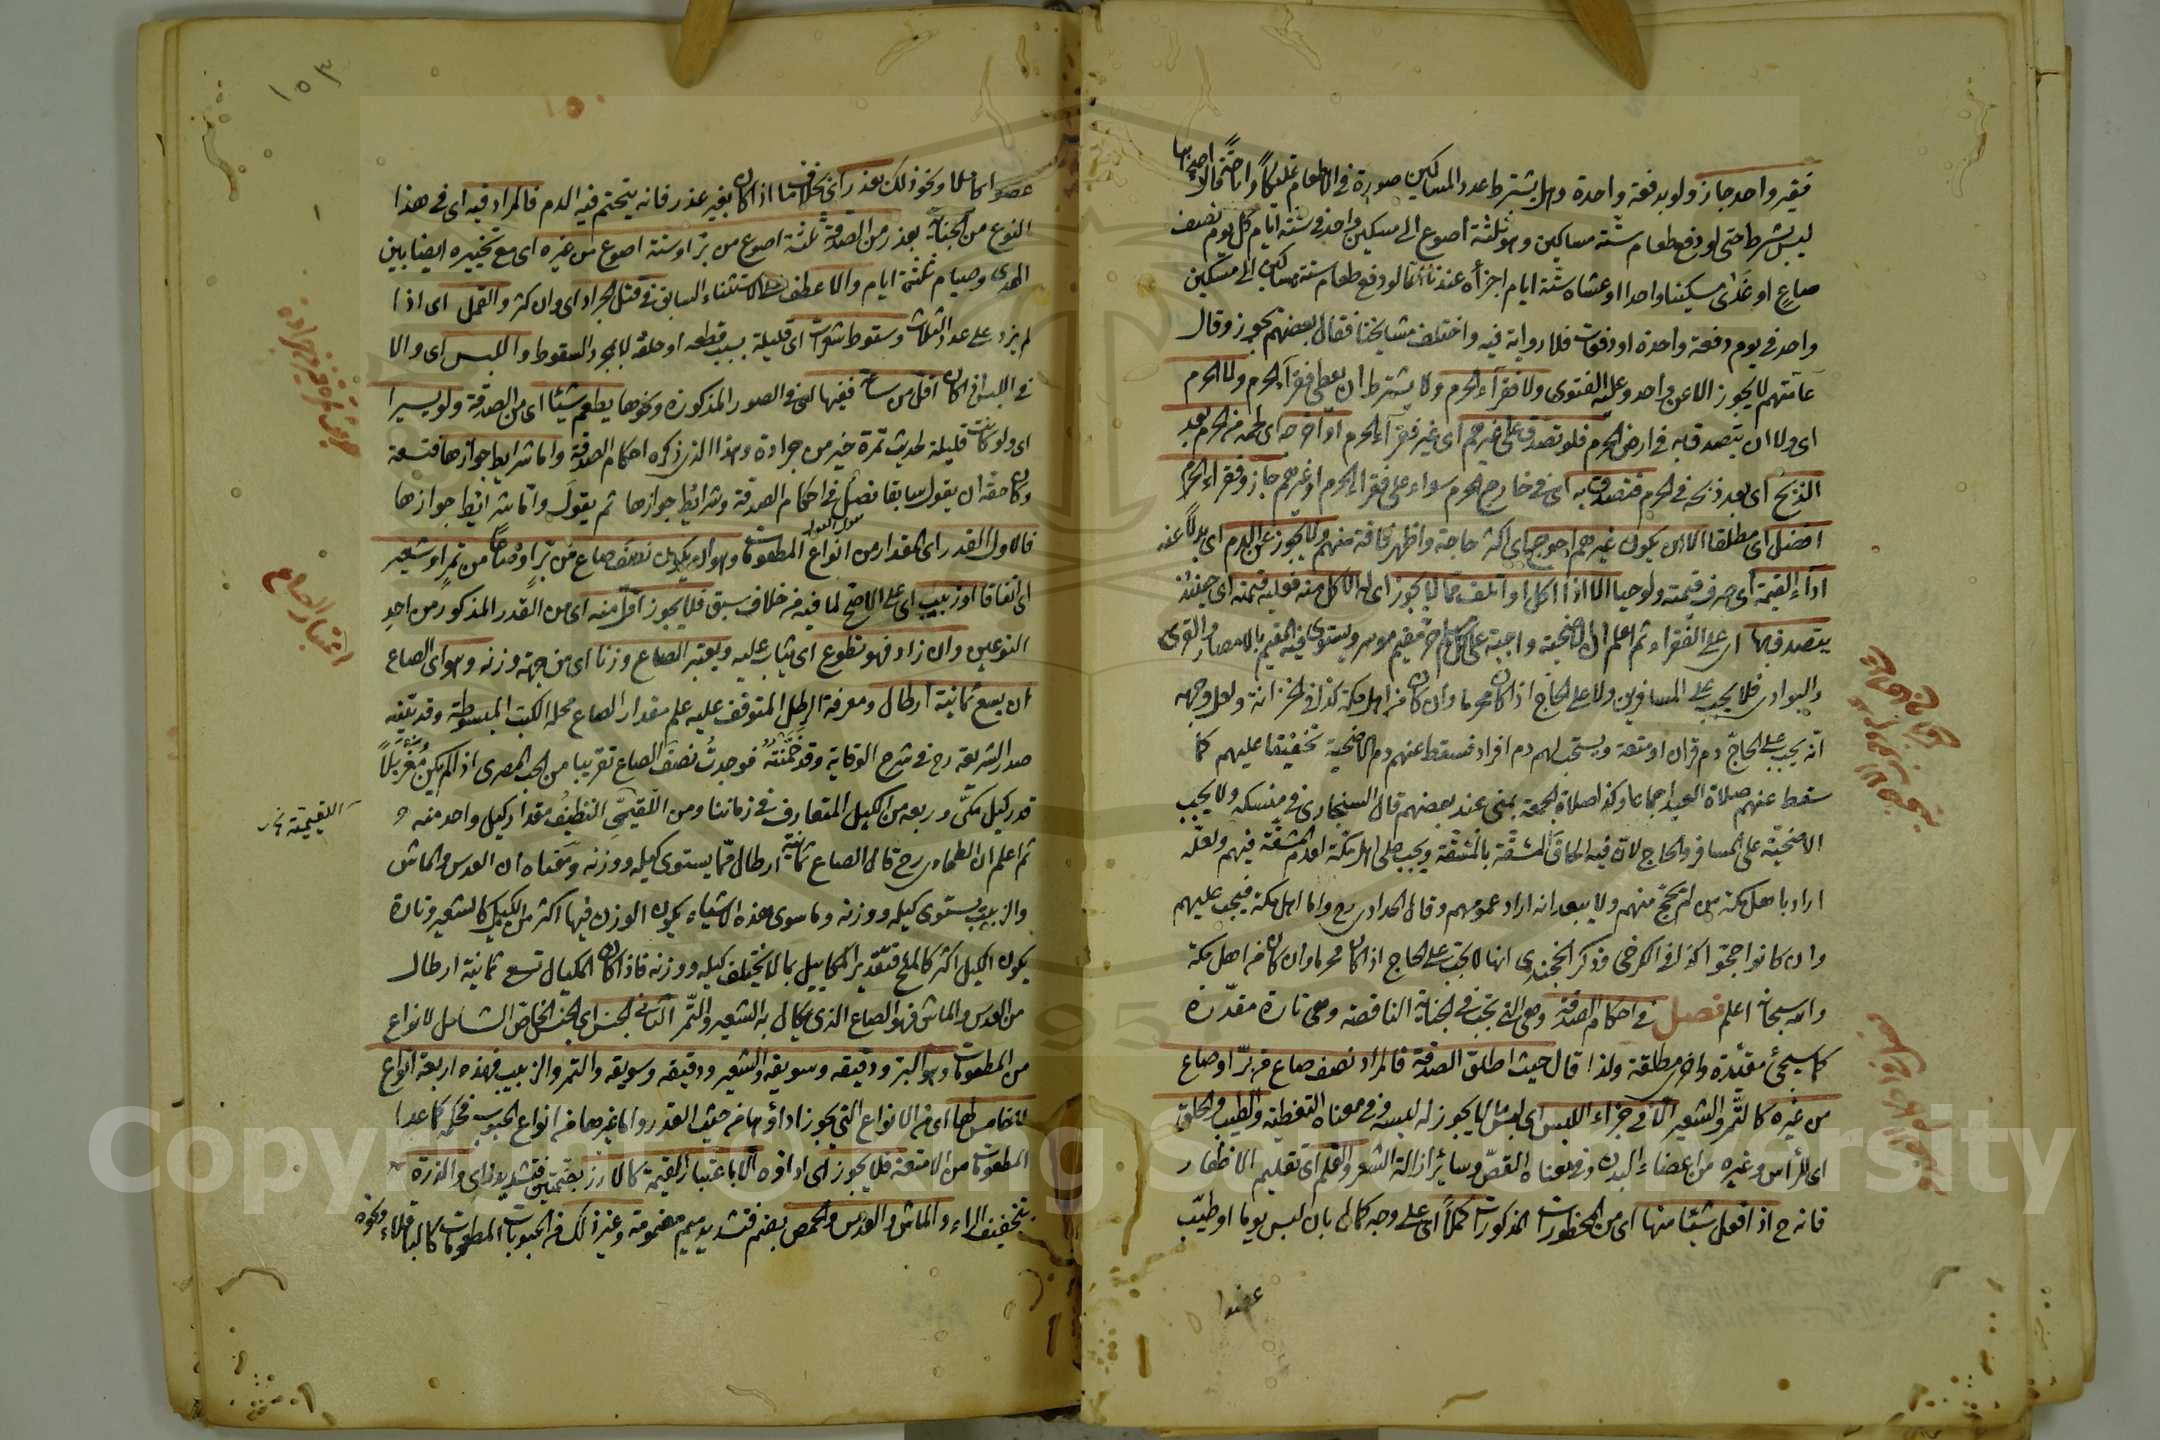 فقير واحد جاز ولو بدفعة واحدة وهل يشترط عدد المساكين صورة في الاطعام تمليكا واباحة قال اصحابنا
ليس بشرط حتى لو دفع طعام ستة مساكين وهو ثلثة اصوع الى مسكين واحد في ستة ايام كل يوم نصف
صاع او غدى مسكينا واحدا او عشاه ستة ايام اجزأه عندنا اما لو دفع طعام ستة مساكين الى مسكين
واحد في يوم دفعة واحدة او دفعات فلا رواية فيه واختلف مشايخنا فقال بعضهم يجوز وقال
عامتهم لا يجوز الا عن واحد وعليه الفتوى ولا فقرآء الحرم ولا يشترط ان يعطي فقرآء الحرم ولا الحرم
اى ولا ان يتصدق به في ارض الحرم فلو تصدق على غيرهم اى غير فقرآء الحرم او اخرجه اى لحمه من الحرم بعد
الذبح اى بعد ذبحه في الحرم فتصدق به اى في خارج الحرم سواء على فقراء الحرم او غيرهم جاز وفقراء الحرم
افضل اى مطلقا الا ان يكون غيرهم احوج اى اكثر حاجة واظهر فاقة منهم ولا يجوز عن الدم اى بدلا عنه
ادآء القيمة اى صرف قيمته ولو حيا الا اذا اكل او اتلف مما لا يجوز اى له الاكل منه فعليه قيمته اى حينئذ
يتصدق بها اى على الفقراء ثم اعلم ان الاضحية واجبة على كل مسلم حر مقيم موسر ويستوى فيه المقيم بالامصار والقرى
والبوادى فلا يجب على المسافرين ولا على الحاج اذا كان محرما وان كان من اهل مكة كذا في الخزانة ولعل وجهه
انه يجب على الحاج دم قران او متعة ويستحب لهم دم افراد فسقط عنهم دم الاضحية تخفيفا عليهم كما
سقط عنهم صلاة العيد اجماعا وكذا صلاة الجمعة بمنى عند بعضهم قال السنجارى في منسكه ولا يجب
الاضحية على المسافر والحاج لان فيه الحاق المشقة بالمشقة ويجب على اهل مكة لعدم المشقة فيهم ولعله
اراد باهل مكة من لم يحج منهم ولا يبعد انه اراد عمومهم وقال الحدادى رح واما اهل مكة فيجب عليهم
وان كانوا حجوا كذا في الكرخى وذكر الخجندى انها لا تجب على الحاج اذا كان محرما وان كان من اهل مكة
والله سبحانه اعلم فصل في احكام الصدقة وهى التى تجب في الجناية الناقصة وهى تارة مقدرة
كما سيجئ مقيدة واخرى مطلقة ولذا قال حيث اطلق الصدقة فالمراد نصف صاع من بر او صاع
من غيره كالتمر والشعير الا في جزاء اللبس اى لبس ما لا يجوز له لبسه وفي معناه التغطية والطيب والحلق
اى للرأس وغيره من اعضاء البدن وفي معناه القص وسائر ازالة الشعر والقلم اى تقليم الاظفار
فانه ح اذا فعل شيئا منها اى من المحظورات المذكورات كملا اى على وجه كمال بان لبس يوما او طيب
عضوا
١٥٣
١٥٠
عضوا كاملا ونحو ذلك بعذر اى بخلاف ما اذا كان بغير عذر فانه يتحتم فيه الدم فالمراد فيه اى في هذا
النوع من الجناية بعذر من الصدقة ثلثة اصوع من بر او ستة اصوع من غيره اى مع تخييره ايضا بين
الهدى وصيام ثلثة ايام والا عطف على الاستثناء السابق في قتل الجراد اى وان كثر والقمل اى اذا
لم يزد على عدد الثلاث وسقوط شعرات اى قليلة بسبب قطعه او حلقه لا بمجرد السقوط واللبس اى والا
في اللبس اذا كان اقل من ساعة ففيها اى في الصور المذكورة ونحوها يطعم شيئا اى من الصدقة ولو يسيرا
اى ولو كانت قليلة لحديث تمرة خير من جرادة وهذا الذى ذكره احكام الصدقة واما شرايط جوازها فتسعة
وكان حقه ان يقول سابقا فصل في احكام الصدقة وشرائط جوازها ثم يقول واما شرائط جوازها
فالاول القدر اى المقدار من انواع المطعومات وهو ان يكون نصف صاع من بر او صاعا من تمر او شعير
اى اتفاقا او زبيب اى على الاصح لما فيه من خلاف سبق فلا يجوز اقل منه اى من القدر المذكور من احد
النوعين وان زاد فهو تطوع اى يثاب عليه ويعتبر الصاع وزنا اى من جهة وزنه وهو اى الصاع
ان يسع ثمانية ارطال ومعرفة الرطل المتوقف عليه علم مقدار الصاع محله الكتب المبسوطة وقد بينه
صدر الشريعة رح في شرح الوقاية وقد خمنته فوجدت نصف الصاع تقريبا من الحب المصرى اذا لم يكن مغربلا
قدر كيل مكى وربعه من الكيل المتعارف في زماننا ومن اللقيمى النظيف مقدار كيل واحد منه و
ثم اعلم ان الطحاوى رح قال الصاع ثمانية ارطال مما يستوى كيله ووزنه ومعناه ان العدس والماش
والزبيب يستوى كيله ووزنه وما سوى هذه الاشياء يكون الوزن فيها اكثر من الكيل كالشعير وتارة
يكون الكيل اكثر كالملح فتقدير المكاييل بما لا يختلف كيله ووزنه فاذا كان المكيال تسع ثمانية ارطال
من العدس والماش فهو الصاع الذى يكال به الشعير والتمر الثانى الجنس اى الجنس الخاص الشامل لانواع
من المطعومات وهو البر ودقيقه وسويقه والشعير ودقيقه وسويقه والتمر والزبيب فهذه اربعة انواع
لا خامس لها اى من الانواع التى يجوز اداؤها من حيث القدر واما غيرها من انواع الحبوب فحكمه كما عدا
المطعومات من الامتعة فلا يجوز اى اداؤه الا باعتبار القيمة كالارز بضمتين فتشديد زاى والذرة
بتخفيف الراء والماش والعدس والحمص بضم فتشديد ميم مضمومة وغير ذلك من الحبوبات المطعومات كالباقلاء ونحوه
اعتبار الصاع
اللقيمية نخـ